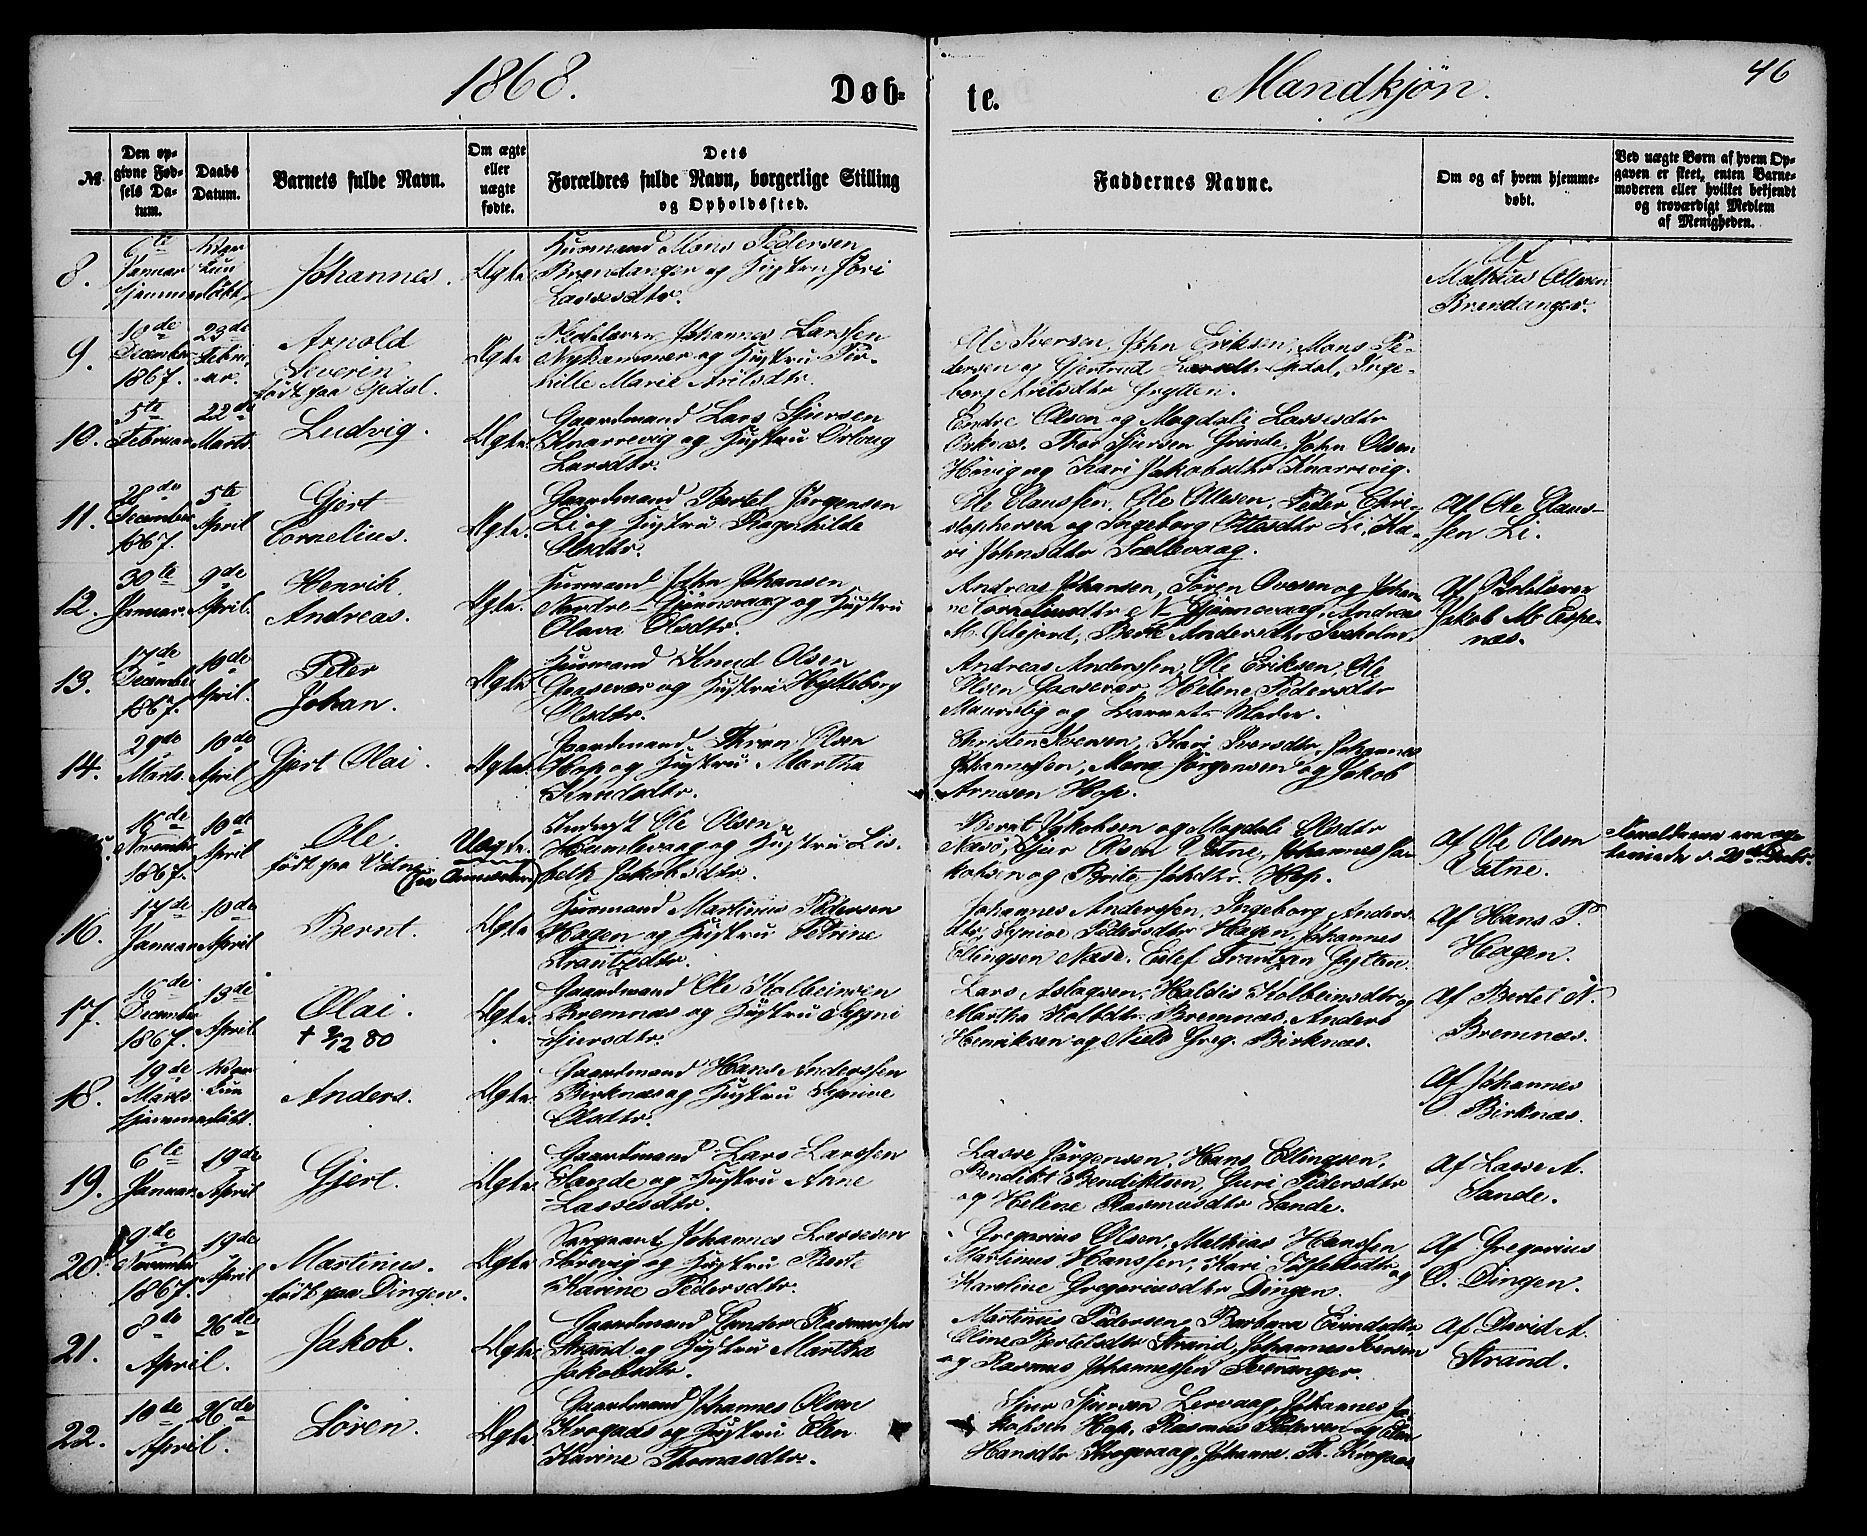 1868. Døb-
te. Mandkjøn. 46
№
Den op-
givne Fød-
sels Da-
tum.
Daabs
Datum.
Barnets fulde Navn.
Om ægte
eller
uægte
fødte.
Dets
Forældres fulde Navn, borgerlige Stilling
og Opholdssted.
Faddernes Navne.
Om og af hvem hjemme-
døbt.
Ved uægte Børn af hvem Op-
gaven er skeet, enten Barne-
moderen eller hvilket bekjendt
og troværdigt Medlem
af Menigheden.
8.
6te
Januar
hjemmedøbt
kun
Johannes.
Ægte
Huusmand Mons Pedersen
Brendanger og Hustru
Lassesdtr.
Af
Mathias Ellesen
Brendanger.
9.
December
1867.
23de
Februar.
Arnold
Severin
født paa Opdal.
Ægte
Johannes Larssen
og Hustru Per-
nille Marie Arilsdtr.
Ole Iversen, John Eriksen, Mons Pe-
dersen og Gjertrud Opdal, Inge-
borg Arilsdtr Grytten.
10.
5te
Februar
22de
Marts
Ludvig.
Ægte
Gaardmand Lars Sjursen
Knarrevig og Hustru
Larsdtr.
Endre Olsen og Magdali Lassesdtr
Thor Sjursen Grinde, John Olsen
og Kari Jakobsdtr Knarrevig.
11.
28de
December
1867.
5te
April
Gjert
Cornelius.
Ægte.
Gaardmand Bertel Jørgensen
Li og Hustru Ragnhilde
Olsdtr.
Ole Claussen, Ole Ellesen, Peder Chri-
stophersen og Ingeborg Li, Ka-
ri Johnsdtr
Af Ole Claus-
sen Li.
12.
30te
Januar.
9de
April.
Henrik
Andreas.
Ægte.
Huusmand John Johansen
Nordre og Hustru
Olava Olsdtr.
Andreas Johansen, Søren Ovesen og Johan-
ne Corneliusdtr N. Andreas
M. Berte Andersdtr
Af
Jakob M. Espe-
næs.
13.
17de
December
1867.
10de
April.
Peter
Johan.
Ægte
Huusmand Knud Olsen
Gaasevær og Hustru
Olsdtr.
Andreas Anderssen, Ole Eriksen, Ole
Olsen Gaasevær, Helene Pedersdtr
og Barnets Moder.
14.
29de
Marts
10de
April
Gjert Olai.
Ægte
Gaardmand Olsen
Hop og Hustru Martha
Knudsdtr.
Christen Iversen, Kari Iversdtr, Johannes
Johannessen, Mons Jørgensen og Jakob
Arnesen Hop.
16de
November
1867.
10de
April
Ole.
født paa Vatne
Uægte.
Ole Olsen
og Hustru Lis-
beth Jakobsdtr.
Bernt Jakobsen og Magdali Olsdtr
Næse, Sjur Olsen Vatne, Johannes Ja-
kobsen og Brite Hop.
Af Ole Olsen
Vatne.
16.
17de
Januar
10de
April
Bernt.
Ægte
Huusmand Martinus Pedersen
Hagen og Hustru Petrine
Frantzdtr.
Johannes Anderssen, Ingeborg Anders-
dtr, Synive Pedersdtr Hagen, Johannes
Ellingsen Næse, Frantzen Grytten.
Af Hans P.
Hagen.
17.
December
1867.
13de
April.
Olai.
† 2/12 80
Ægte
Gaardmand Ole Kolbeinsen
Bremnæs og Hustru
Sjursdtr.
Lars Aslagsen, Haldis Kolbeinsdtr og
Martha Bremnæs, Anders
Henriksen og Niels Greg. Birknæs.
Af Bertel N.
Bremnæs.
18.
19de
Marts
hjemmedøbt
kun
Anders.
Ægte
Gaardmand Hans Anderssen
Birknæs og Hustru Synive
Olsdtr.
Af Johannes
O. Birknæs.
19.
6te
Januar
19de
April
Gjert.
Ægte
Gaardmand Lars Larssen
Sande og Hustru Anne
Lassesdtr.
Lasse Jørgensen, Hans Ellingsen,
Bendikt Bendiktsen, Guri Pedersdtr
og Helene Rasmusdtr Sande.
Af Lasse A.
Sande.
20.
9de
November
1867.
19de
April
Martinus.
født paa Dingen.
Ægte
Johannes Lassesen
og Hustru Berte
Karine Pedersdtr.
Gregorius Olsen, Mathias Hanssen,
Martinus Hanssen, Kari og
Karoline Gregoriusdtr Dingen.
Af Gregorius
O. Dingen.
21.
8de
April.
26de
Jakob.
Ægte
Gaardmand Sander Rasmussen
Strand og Hustru Martha
Jakobsdtr.
Martinus Pedersen, Barbara Eivindsdtr,
Oline Bertelsdtr Strand, Johannes Iversen
og Rasmus Johannessen Tveranger.
Af David A.
Strand.
22.
10de
April.
26de
Søren.
Ægte
Gaardmand Johannes Olsen
Krogaas og Hustru Elen
Karine Thomasdtr.
Sjur Sjursen Lervaag, Johannes Ja-
kobsen Hop, Rasmus Pedersen og Elen
Hansdtr Johanne Th. Krogaas